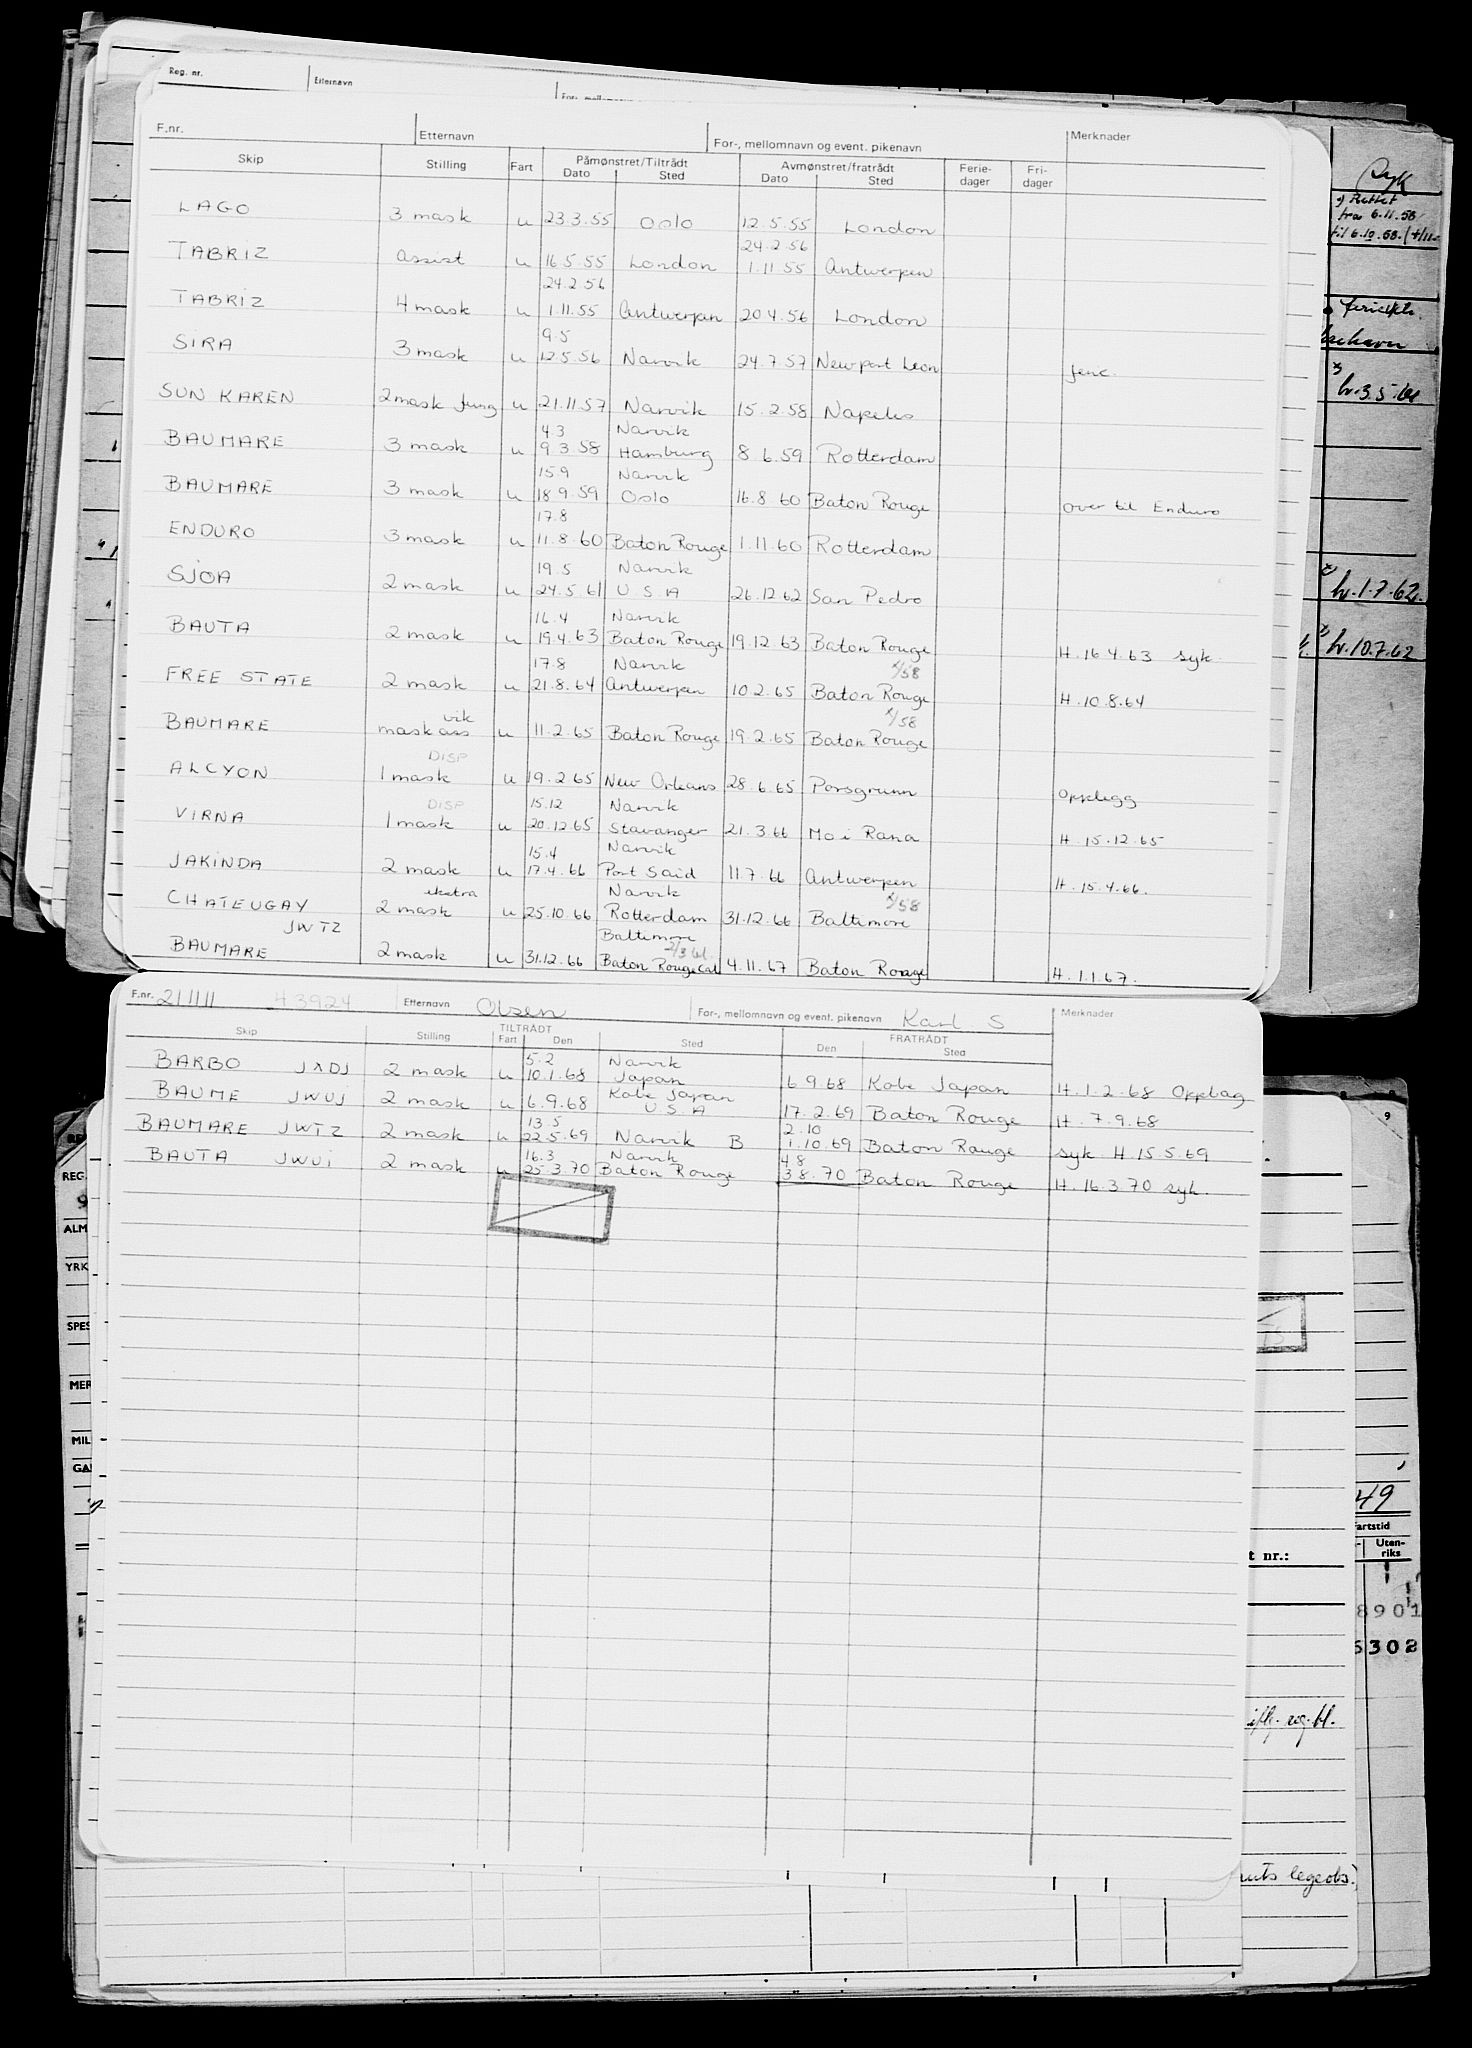 Reg. nr. Etternavn
F.nr. Etternavn For-, mellomnavn og event. pikenavn Merknader
Skip Stilling Fart Påmønstret/Tiltrådt Avmønstret/fratrådt Ferie- Fri-
Dato Sted Dato Sted dager dager
LAGO 3 mask u 23.3.55 Oslo 12.5.55 London
24.2.56
TABRIZ assist u 16.5.55 London 1.11.55 Antwerpen
24.2.56
TABRIZ 4 mask u 1.11.55 Antwerpen 20.4.56 London
9.5
SIRA 3 mask u 12.5.56 Narvik 24.7.57 Newport ferie.
SUN KAREN 2 mask u 21.11.57 Narvik 15.2.58 Napoles
4.3 Narvik
BAUMARE 3 mask u 9.3.58 Hamburg 8.6.59 Rotterdam
15.9 Narvik
BAUMARE 3 mask u 18.9.59 Oslo 16.8.60 Baton Rouge over til Enduro
17.8
ENDURO 3 mask u 11.8.60 Baton Rouge 1.11.60 Rotterdam
19.5 Narvik
SJOA 2 mask u 24.5.61 U.S.A 26.12.62 San Pedro
16.4 Narvik
BAUTA 2 mask u 19.4.63 Baton Rouge 19.12.63 Baton Rouge H. 16.4.63 syk.
17.8 Narvik x/58
FREE STATE 2 mask u 21.8.64 Antwerpen 10.2.65 Baton Rouge H. 10.8.64
vik x/58
BAUMARE mask ass u 11.2.65 Baton Rouge 19.2.65 Baton Rouge
DISP
ALCYON 1 mask u 19.2.65 New Orleans 28.6.65 Porsgrunn Opplegg
DISP 15.12 Narvik
VIRNA 1 mask u 20.12.65 Stavanger 21.3.66 Mo i Rana H. 15.12.65
15.4 Narvik
JAKINDA 2 mask u 17.4.66 Port Said 11.7.66 Antwerpen H. 15.4.66.
ekstra Narvik x/58
CHATEUGAY 2 mask u 25.10.66 Rotterdam 31.12.66 Baltimore
JWTZ Baltimore
BAUMARE 2 mask u 31.12.66 Baton Rouge 4.11.67 Baton Rouge H. 1.1.67.
F.nr. 211111 43924 Etternavn Olsen For-, mellomnavn og event. pikenavn Karl S Merknader
Skip Stilling TILTRÅDT FRATRÅDT
Fart Den Sted Den Sted
5.2 Narvik
BARBO JXDJ 2 mask u 10.1.68 Japan 6.9.68 Kobe Japan H. 1.2.68 Opplag
Kobe Japan
BAUME JWUJ 2 mask u 6.9.68 U.S.A 17.2.69 Baton Rouge H. 7.9.68
13.5 2.10
BAUMARE JWTZ 2 mask u 22.5.69 Narvik B 1.10.69 Baton Rouge syk H. 15.5.69
16.3 Narvik 4.8
BAUTA JWUi 2 mask u 25.3.70 Baton Rouge 3.8.70 Baton Rouge H. 16.3.70 syk.
Syk
x) Rettet
fra 6.11.58
til 6.10.58.
hr. 3.5.61
hr. 1.7.62.
hr. 10.7.62
REG.
9
ALM
YRK
SPES
MER
MIL
GA
49
fartstid
t nr.: Uten-
riks
8901
5302